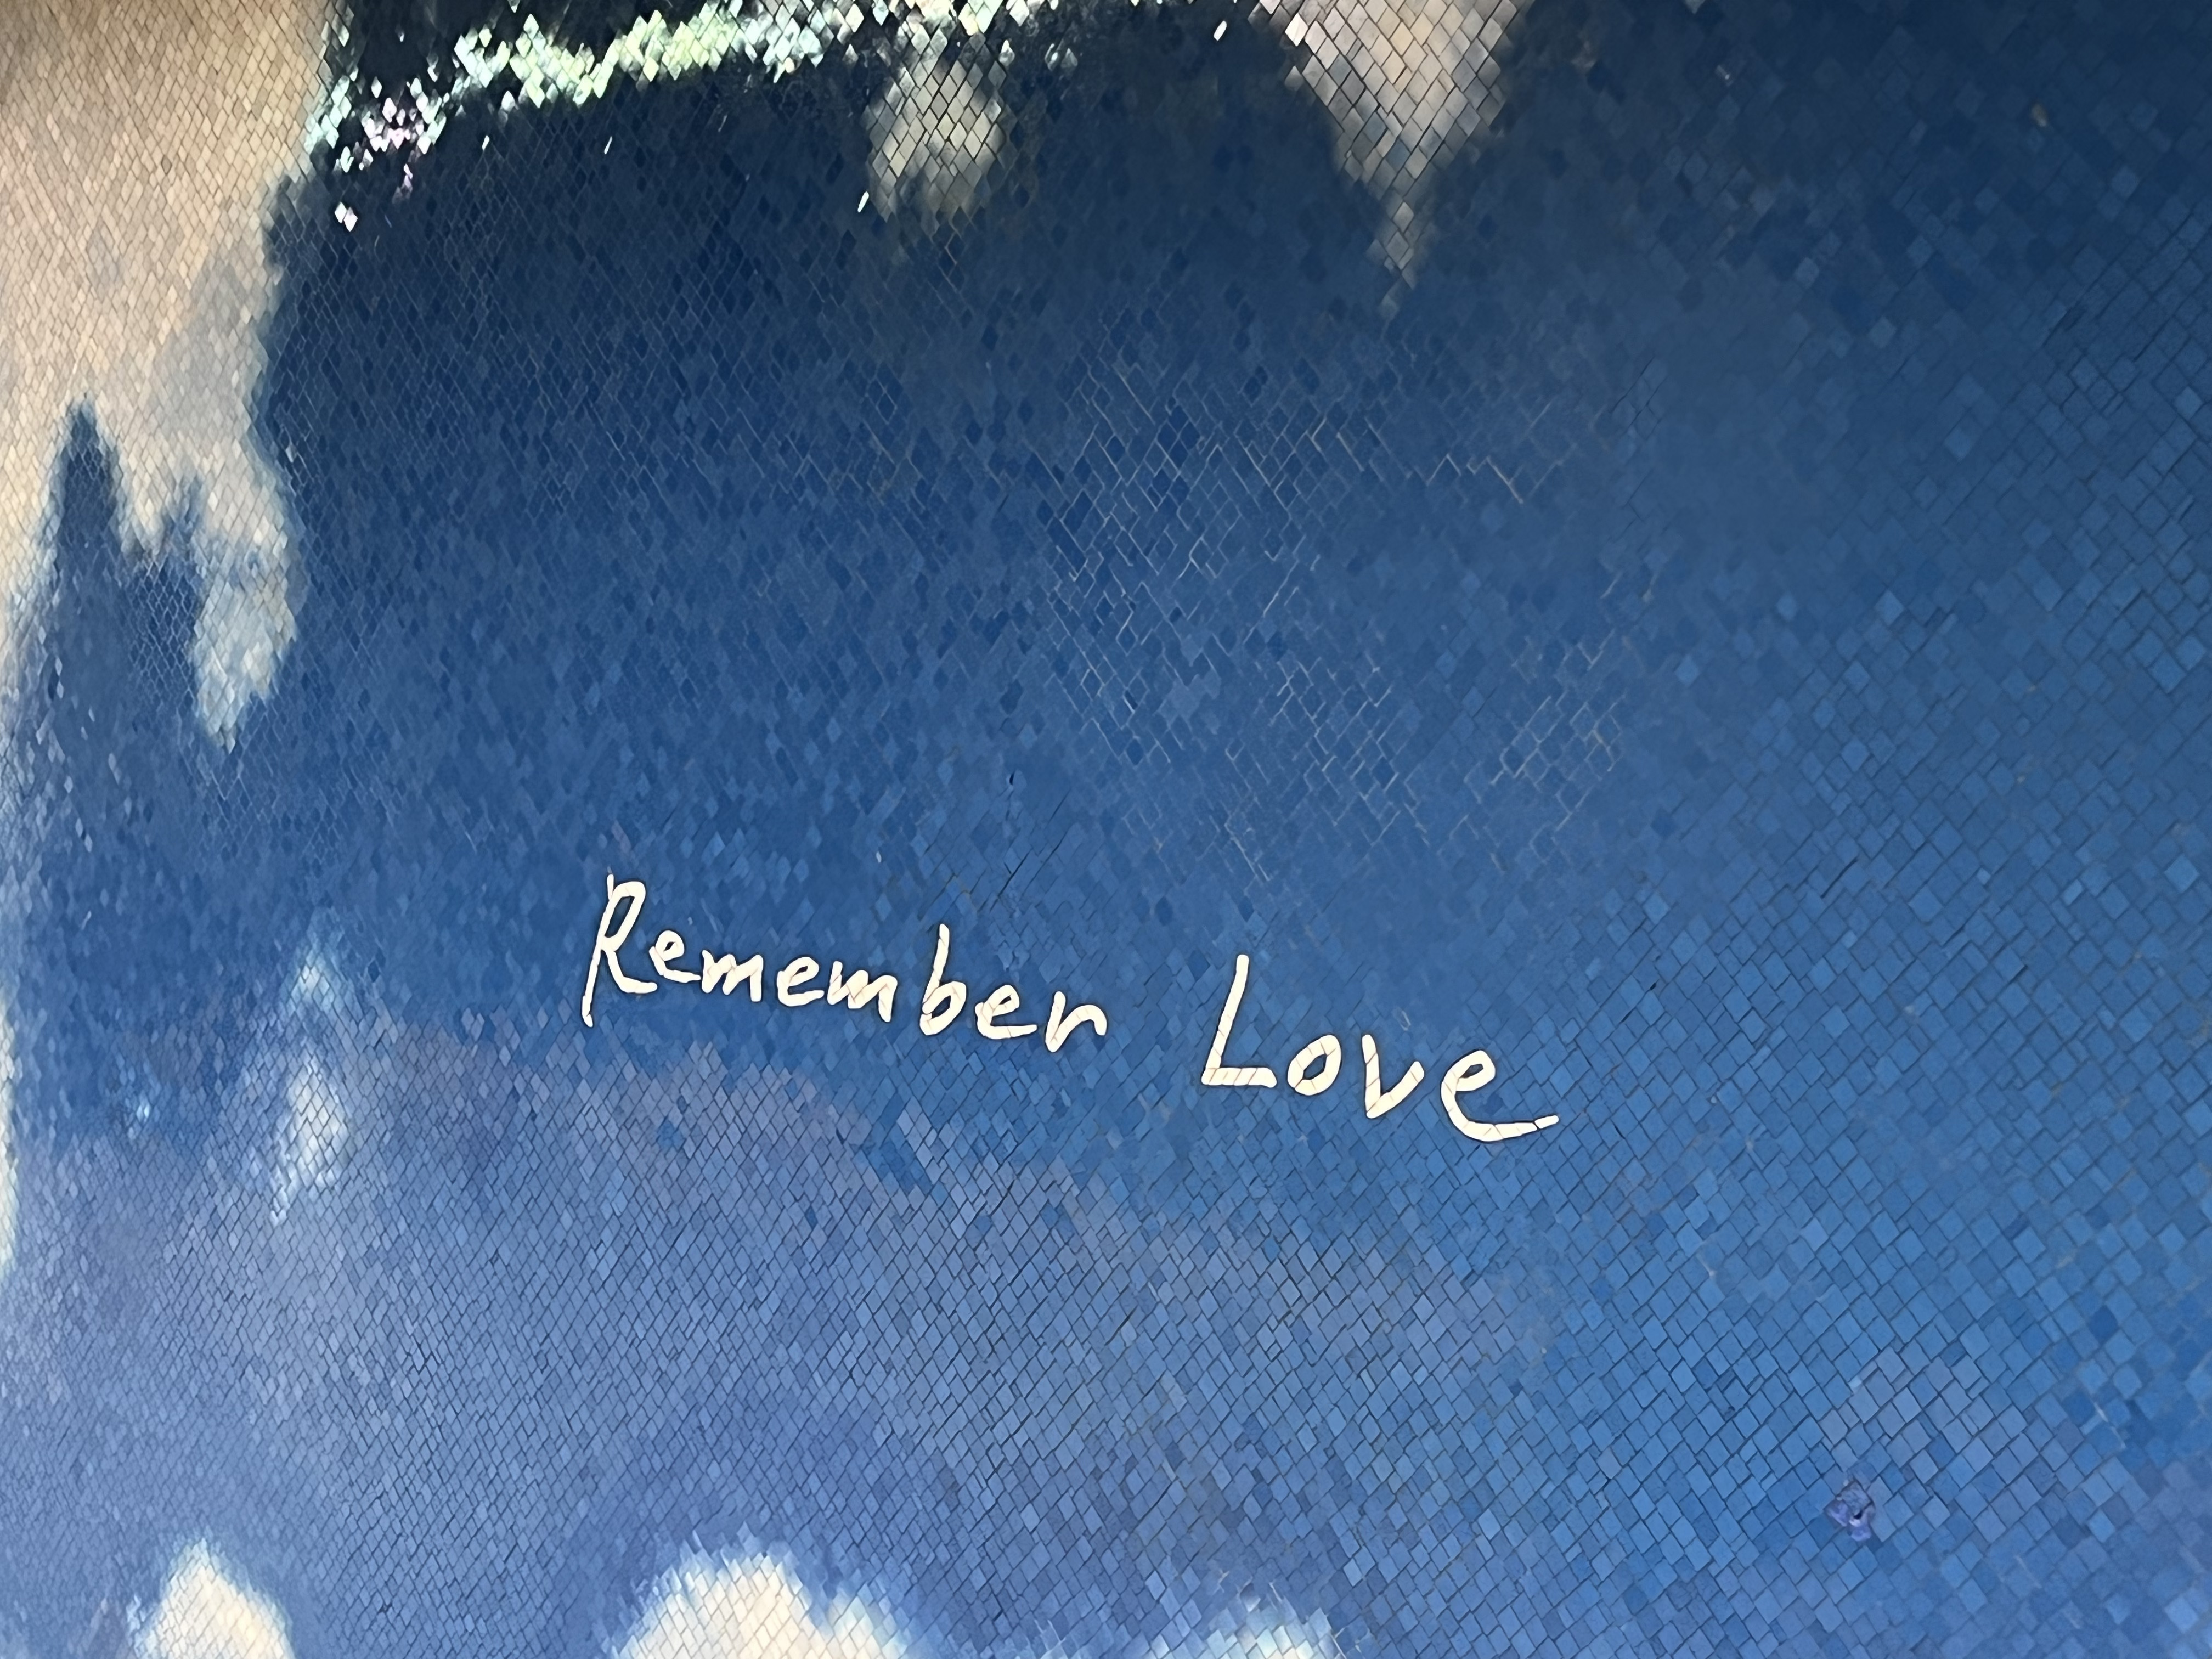 Remember Love